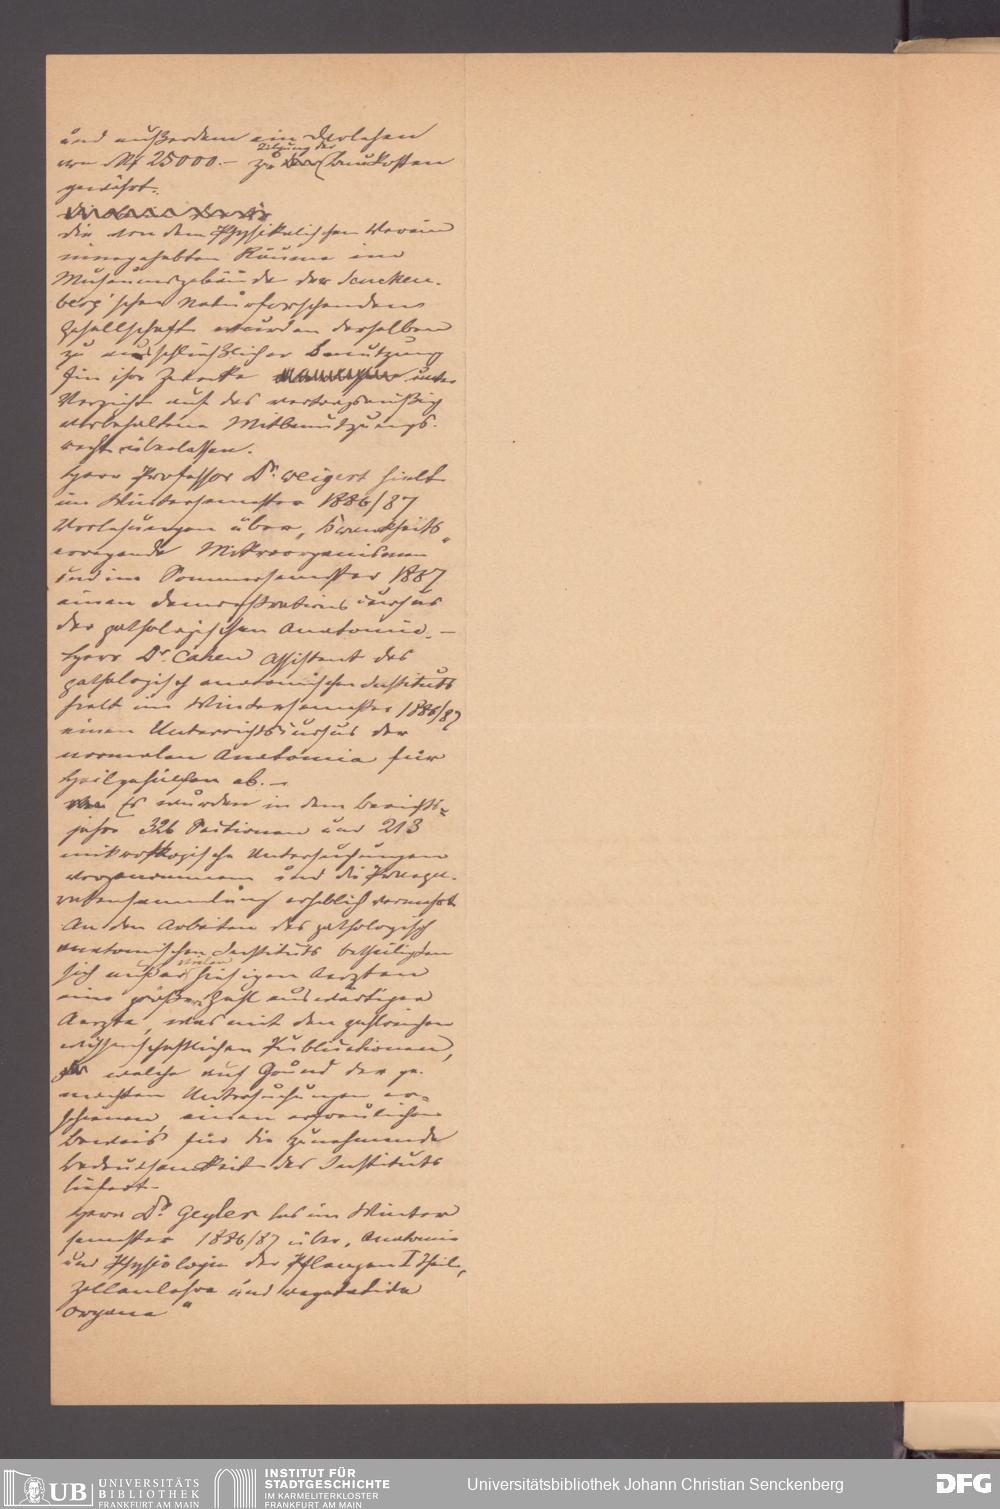 und außerdem ein Darlehen
von Mk 25000.– zu Tilgung der Baukosten
gewährt.
die von dem Physikalischen Verein
innegehabten Räume im
Museumsgebäude der Sencken-
berg'schen Naturforschenden
Gesellschaft wurden derselben
zu ausschließlicher Benutzung
für ihre Zwecke unter
Verzicht auf das vertragsmäßig
vorbehaltene Mitbenutzungs-
recht überlassen.
Herr Professor Dr. Weigert hielt
im Wintersemester 1886/87
Vorlesungen über „Krankheits
erregende Mikroorganismen"
und im Sommersemester 1887
einen Demonstrations cursus
der pathologischen Anatomie. –
Herr Dr. Cahen Assistent des
pathologisch anatomischen Instituts
hielt im Wintersemester 1886/87
einen Unterrichtscursus der
normalen Anatomie für
Heilgehülfen ab. –
Es wurden in dem Berichts-
jahre 326 Sectionen und 213
mikroskopische Untersuchungen
vorgenommen und die Präpa-
ratensammlung erheblich vermehrt
An den Arbeiten des pathologisch
anatomischen Instituts betheiligten
sich außer vielen hiesigen Aerzten
eine größere Zahl auswärtiger
Aerzte, was mit den zahlreichen
wissenschaftlichen Publicationen,
welche auf Grund der ge-
machten Untersuchungen er-
schienen, einen erfreulichen
Beweis für die zunehmende
Bedeutsamkeit des Instituts
liefert. –
Herr Dr. Geyler las im Winter
semester 1886/87 über „Anatomie
und Physiologie der Pflanzen I Theil,
Zellenlehre und vegetative
Organe"
UB UNIVERSITÄTS
BIBLIOTHEK
FRANKFURT AM MAIN
INSTITUT FÜR
STADTGESCHICHTE
IM KARMELITERKLOSTER
FRANKFURT AM MAIN
Universitätsbibliothek Johann Christian Senckenberg
DFG